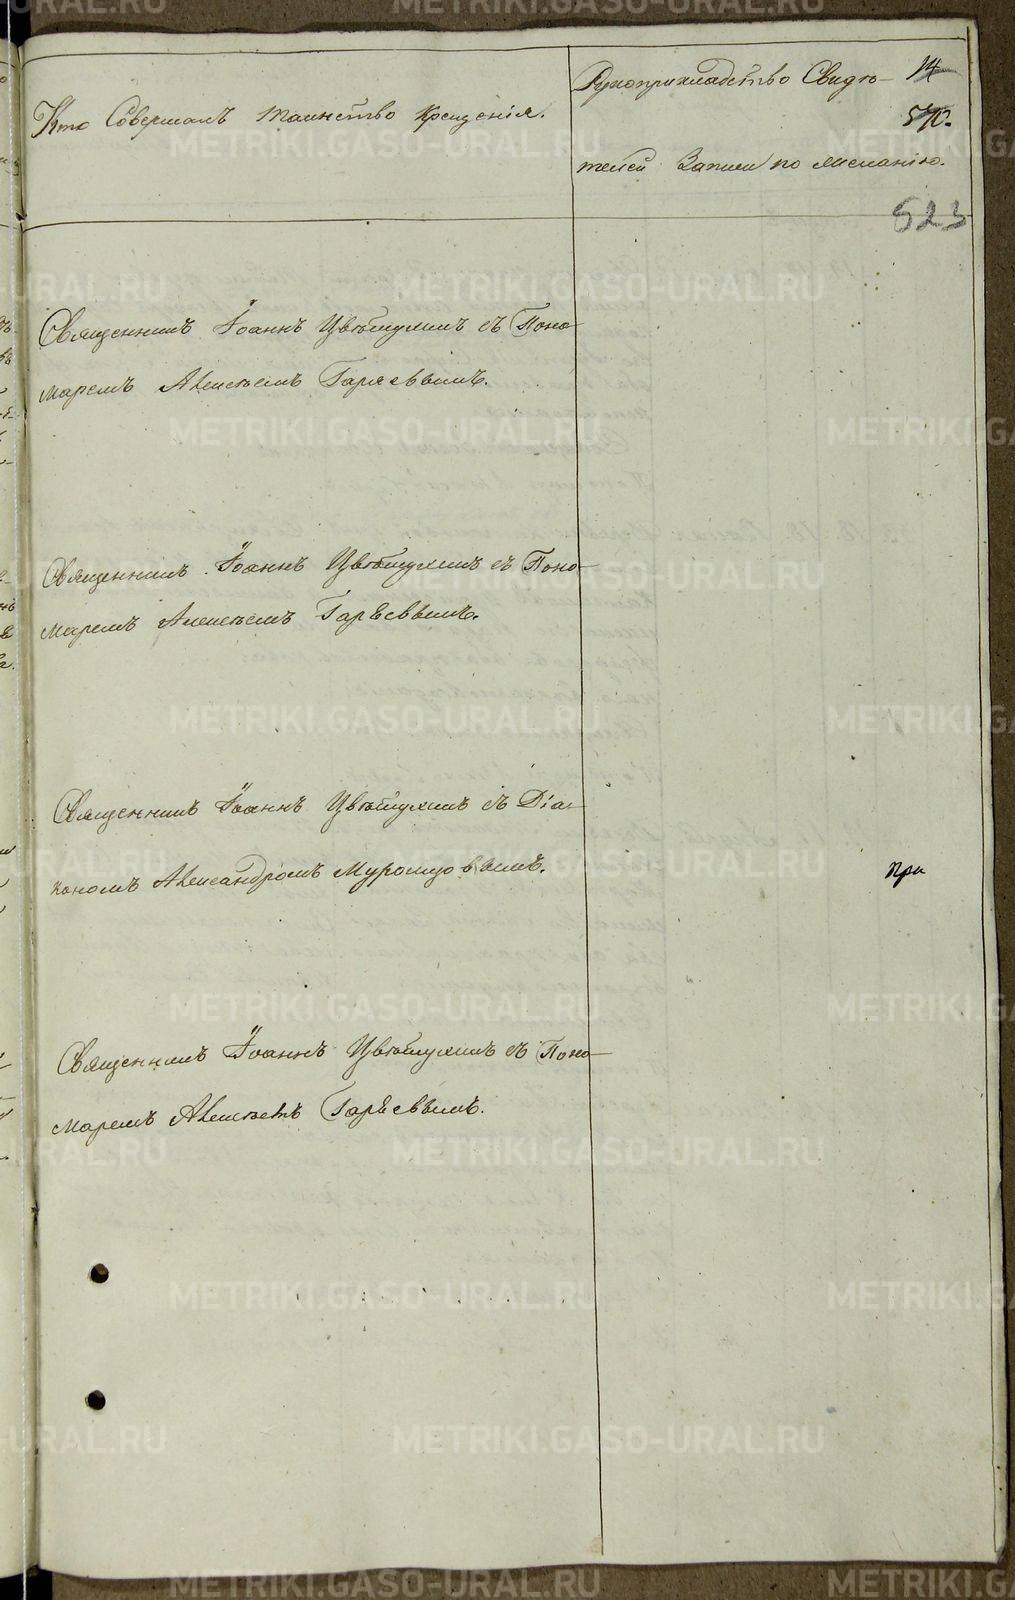 Кто Совершалъ Таинство крещенія.
Рукоприкладство Свидѣ-
телей Записи по желанію.
14
570.
523
Священникъ Іоаннъ Цвѣтухинъ съ Поно-
маремъ Алексѣемъ Гаряевымъ.
Священникъ Іоаннъ Цвѣтухинъ съ Поно-
маремъ Алексѣемъ Гаряевымъ.
Священникъ Іоаннъ Цвѣтухинъ съ Діа-
кономъ Александромъ Муромцовымъ.
при
Священникъ Іоаннъ Цвѣтухинъ съ Поно-
маремъ Алексѣемъ Гаряевымъ.
METRIKI.GASO-URAL.RU